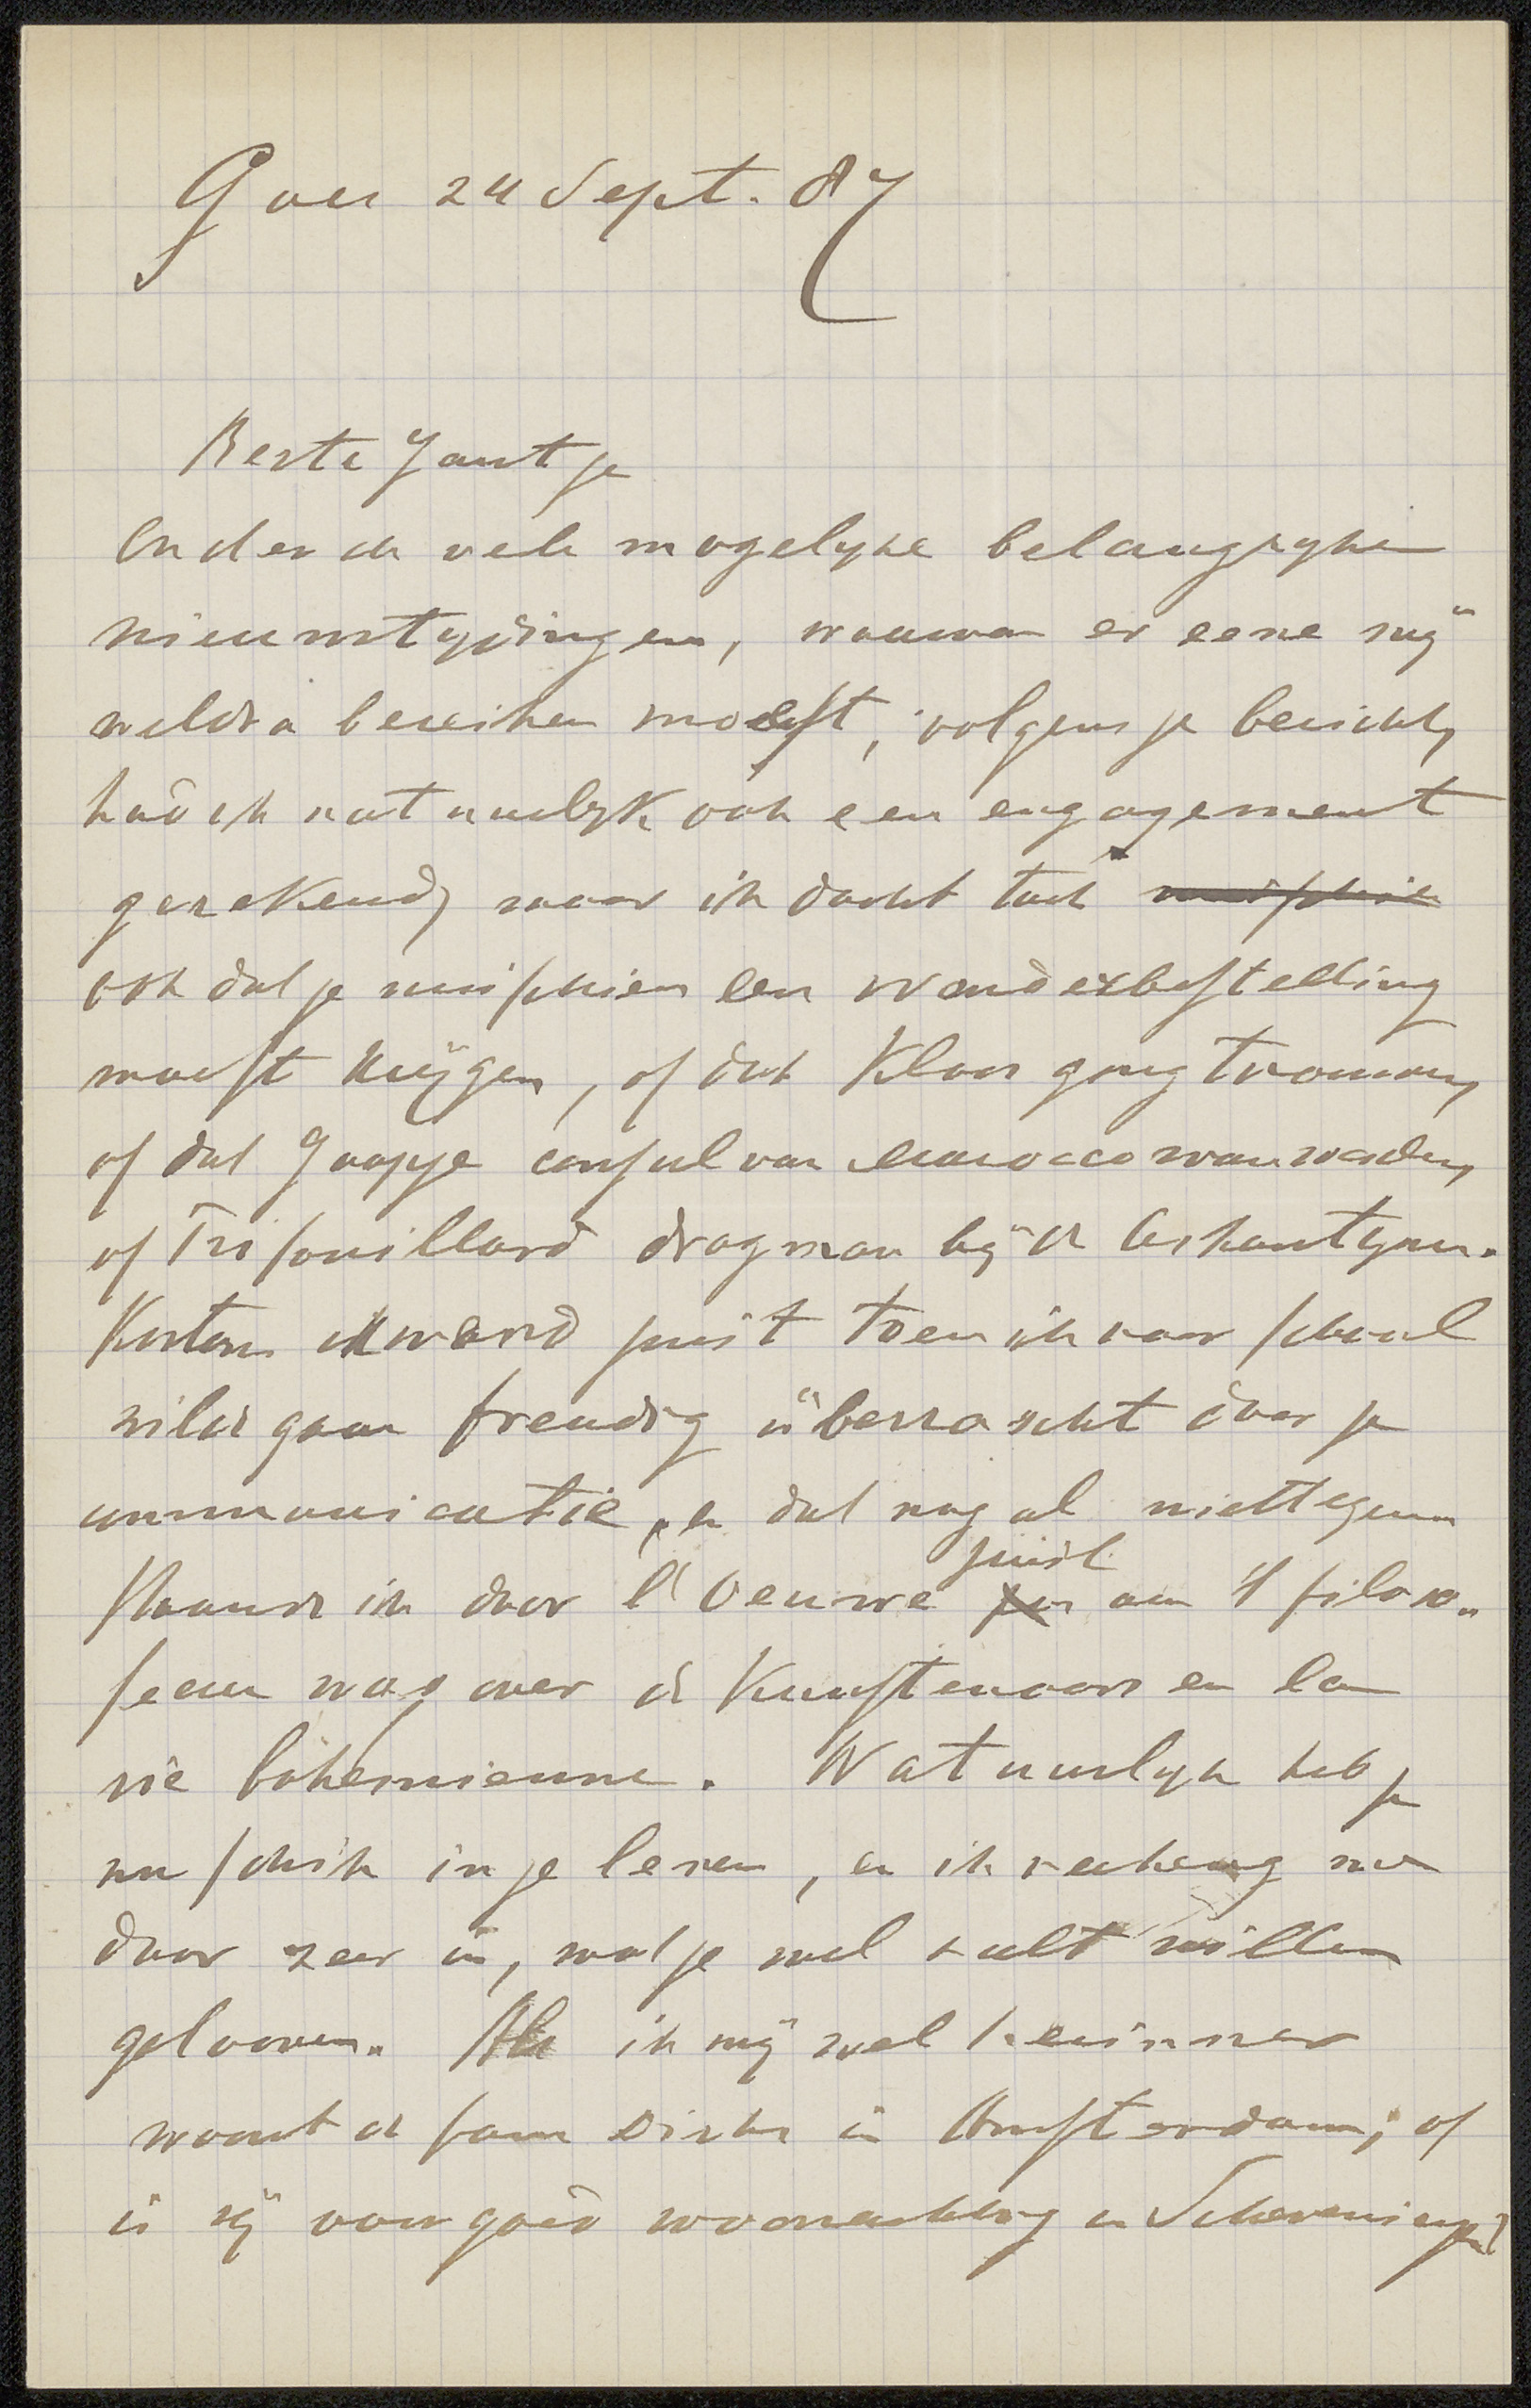 Goes 24 Sept. 87
Beste Jantje
Onder de vele mogelyke belangryke
nieuwstydingen, waarvan er eene mij
weldra bereiken moest, volgens je bericht,
had ik natuurlyk ook een engagement
gerekend, maar ik dacht toch misschien
ook dat je misschien een wandexbestelling
moest krijgen, of dat Klaas ging trouwen,
of dat Jaapje consul van Marocco was worden,
of Trifouillard dragman bij de Ashantynen.
Kortom ik werd juist toen ik naar school
wilde gaan freudig überrascht door je
communicatie, en dat nog al niettegen-
staande ik door l'Oeuvre juist aan 't filoso-
feeren was over de Kunstenaars en la
vie bohémienne. Natuurlyk heb je
nu schik in je leven, en ik verheug me
daar zeer in, wat je wel zult willen
gelooven. Als ik mij wel herinner
woont de fam Dirks in Amsterdam; of
is zij voor goed woonachtig in Scheveningen?